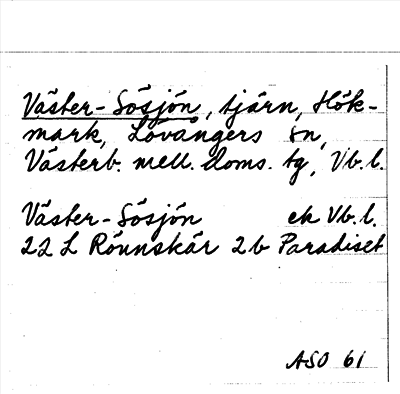 Väster-Sösjön, tjärn, Hök-
mark, Lövångers sn,
Västerb. mell. doms. tg, Vb.l.
Väster-Sösjön ek Vb.l.
22 L Rönnskär 2b Paradiset
ASO 61